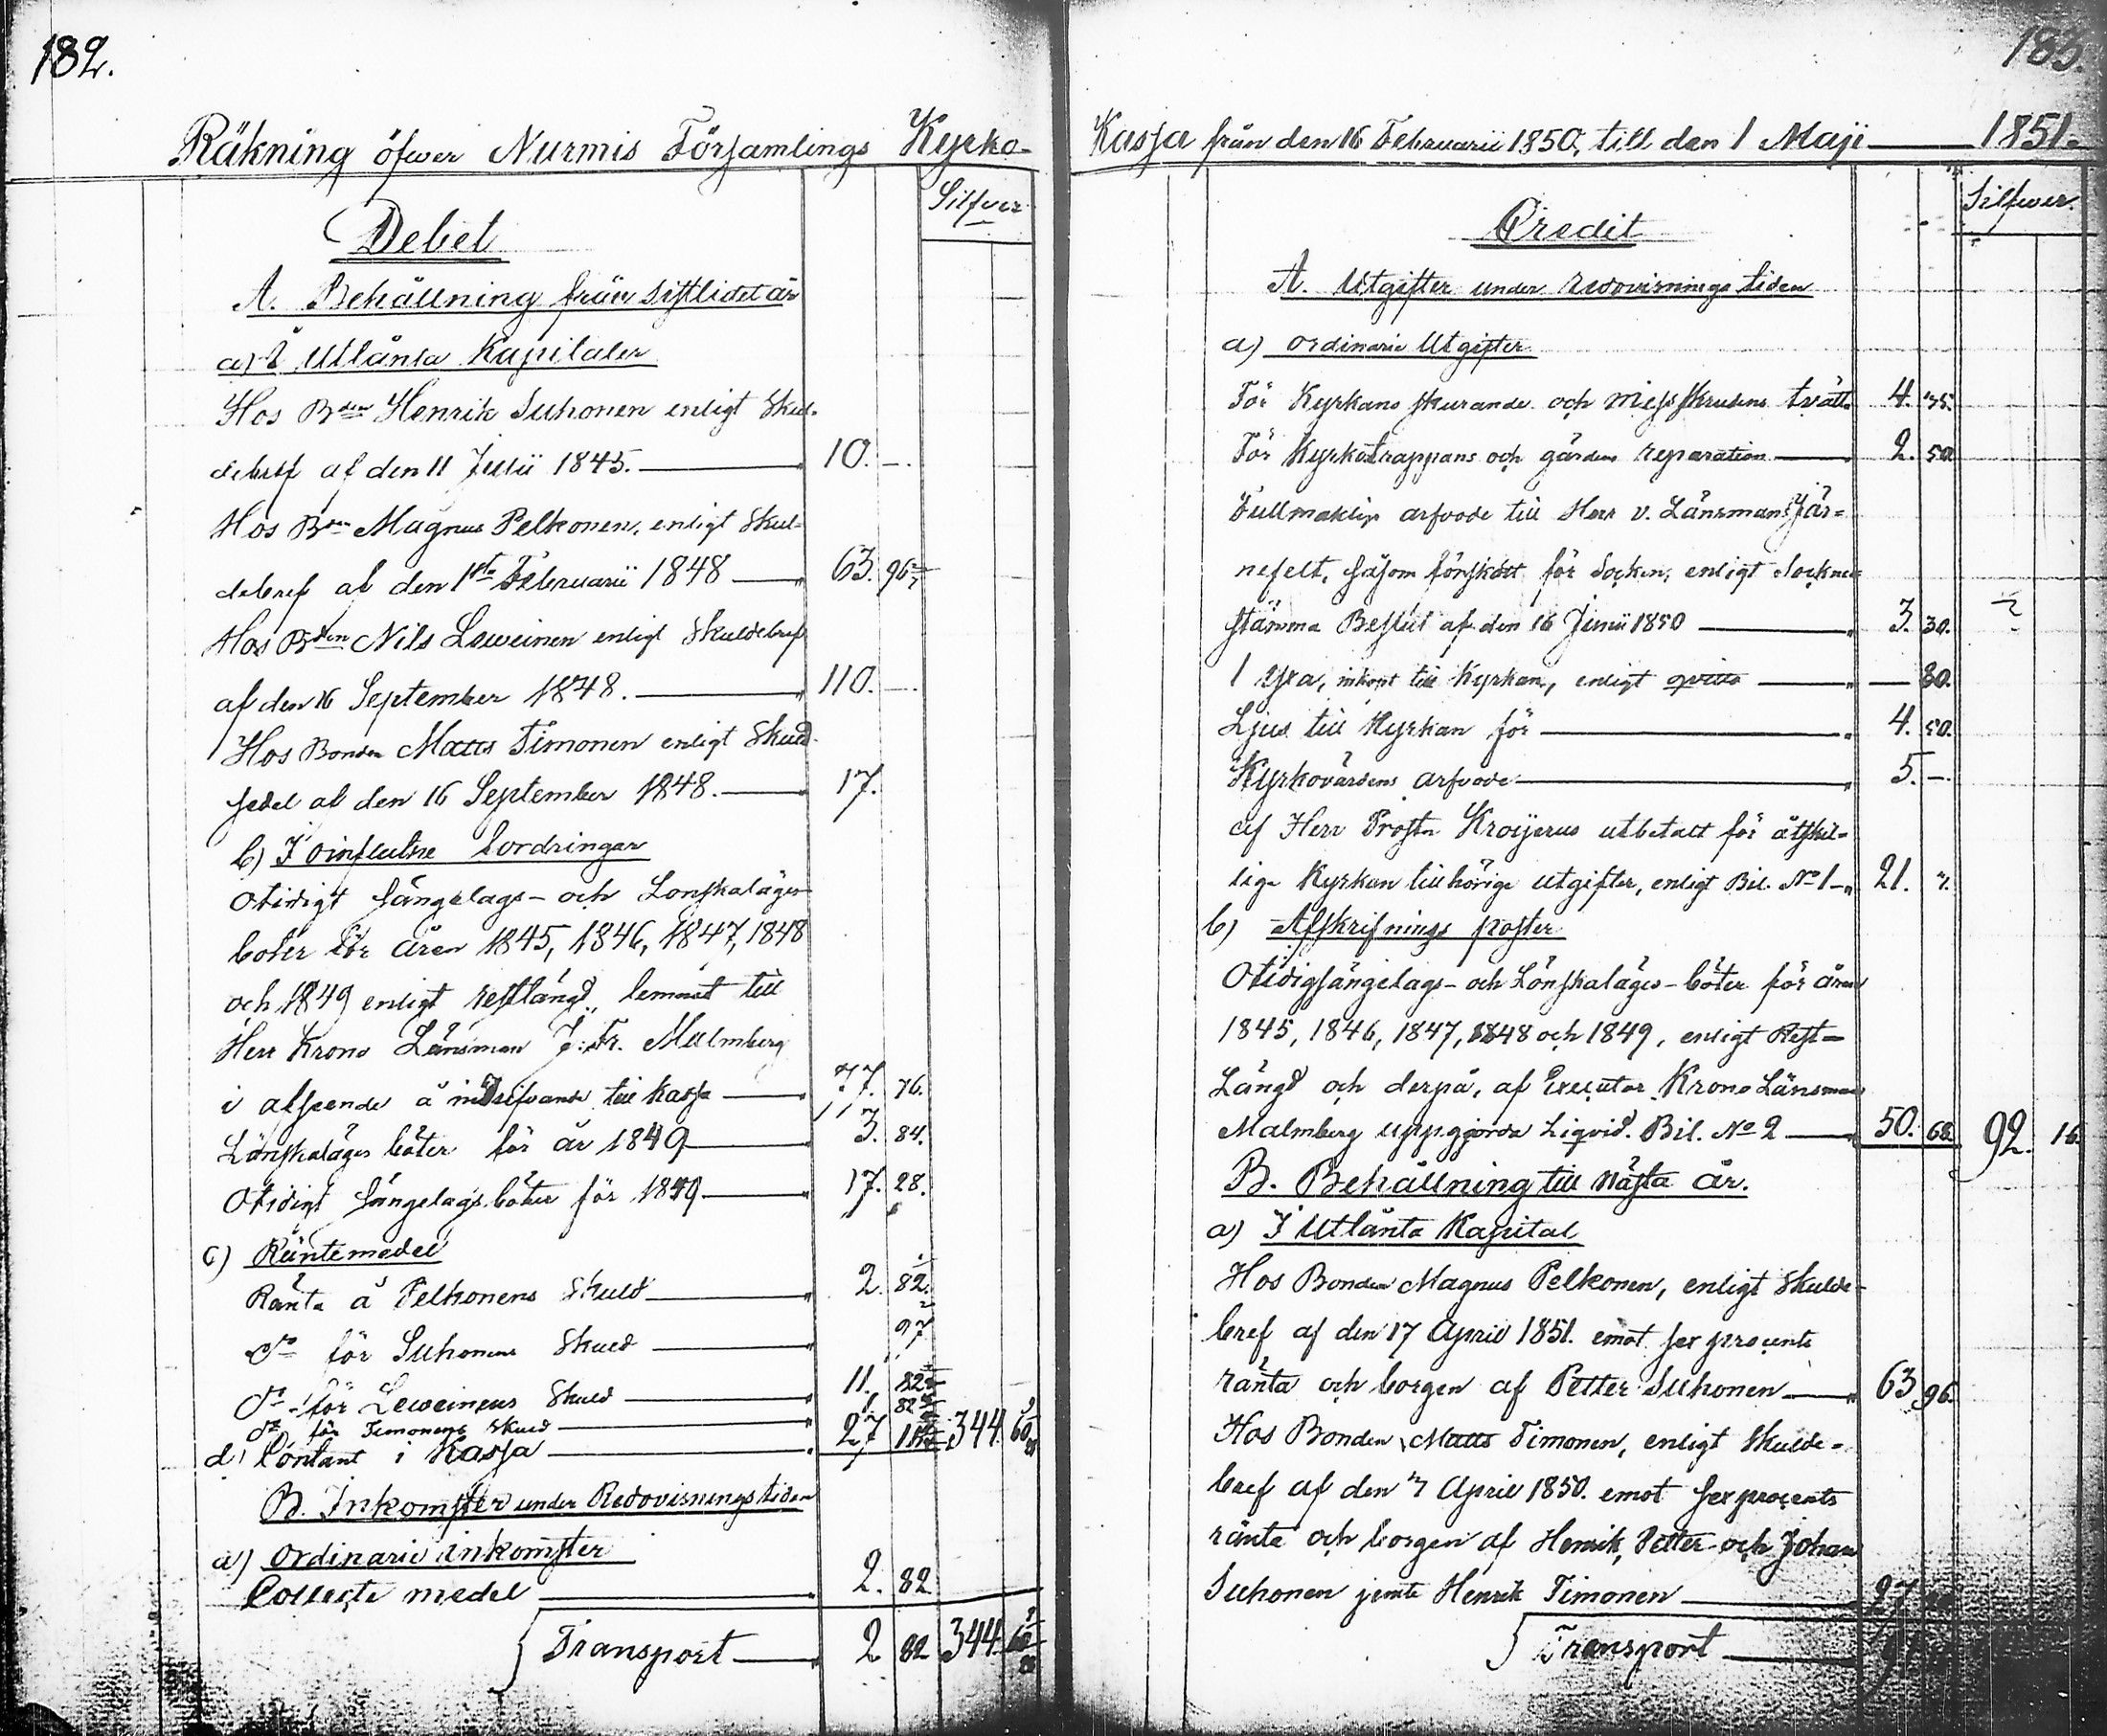 182.
Räkning öfwer Nurmis Församlings Kyrko-
Silfver
Debet
A. Behållning från sistlidet år
a) I Utlånta Kapitaler
Hos Bden Henrik Suhonen enligt Skul-
debref af den 11 Julii 1845. 10. —
Hos Bden Magnus Pelkonen, enligt Skul-
debref af den 1sta Februarii 1848 63. 96
Hos Bden Nils Leweinen enligt Skuldebref
af den 16 September 1848. 110. —
Hos Bonden Matts Timonen enligt Skuld-
sedel af den 16 September 1848. 17.
b) I oinflutne fordringar
Otidigt sängelags- och Lönskaläges
böter för åren 1845, 1846, 1847, 1848
och 1849 enligt restlängd, lemnat till
Herr Krono Länsman J. Fr. Malmberg
i afseende å indrifvande till kassa 77. 76.
Lönskaläges böter för år 1849 3. 84.
Otidigt sängelags böter för 1849 17. 28.
c) Räntemedel
Ränta å Pelkonens Skuld 2. 82
do för Suhonens Skuld
do för Leweinens Skuld 11. 82
do för Timonens Skuld 1. 82
d) Contant i Kassa 27 344. 60
B. Inkomster under Redovisnings tiden
a) Ordinarie inkomster
Collecte medel 2. 82
Transport 2 82 344. 60
183.
Kassa från den 16 Februarii 1850, till den 1 Maji 1851.
Silfwer.
Credit
A. Utgifter under redovisnings tiden
a) Ordinarie Utgifter
För Kyrkans skurande och messskrudens tvätt 4. 75.
För Kyrkotrappans och gårdens reparation 2. 50
Fullmäktige arfvode till Herr v. Länsman Jär-
nefelt, såsom förskott för Socken, enligt Sockne
stämma Beslut af den 16 Junii 1850 3. 30.
1 Yxa, inköpt till Kyrkan, enligt qvitto — 80.
Ljus till Kyrkan för 4. 50.
Kyrkovärdens arfvode 5. —
af Herr Prosten Kroijerus utbetalt för åtskil-
lige Kyrkan tillhörige utgifter, enligt Bil. No 1 21. 7.
b) Afskrifnings poster
Otidigsängelags- och Lönskaläges-böter för åren
1845, 1846, 1847, 1848 och 1849, enligt Rest-
Längd och derpå, af Executor Krono Länsman
Malmberg uppgjorda Liqvid. Bil. No 2 50. 68. 92. 16.
B. Behållning till nästa år.
a) I Utlånta Kapital
Hos Bonden Magnus Pelkonen, enligt Skulde-
bref af den 17 April 1851. emot sex procents
ränta och borgen af Petter Suhonen 63 96.
Hos Bonden Matts Timonen, enligt Skulde-
bref af den 7 April 1850. emot sex procents
ränta och borgen af Henrik, Petter och Johan
Suhonen jemte Henrik Timonen 27
Transport